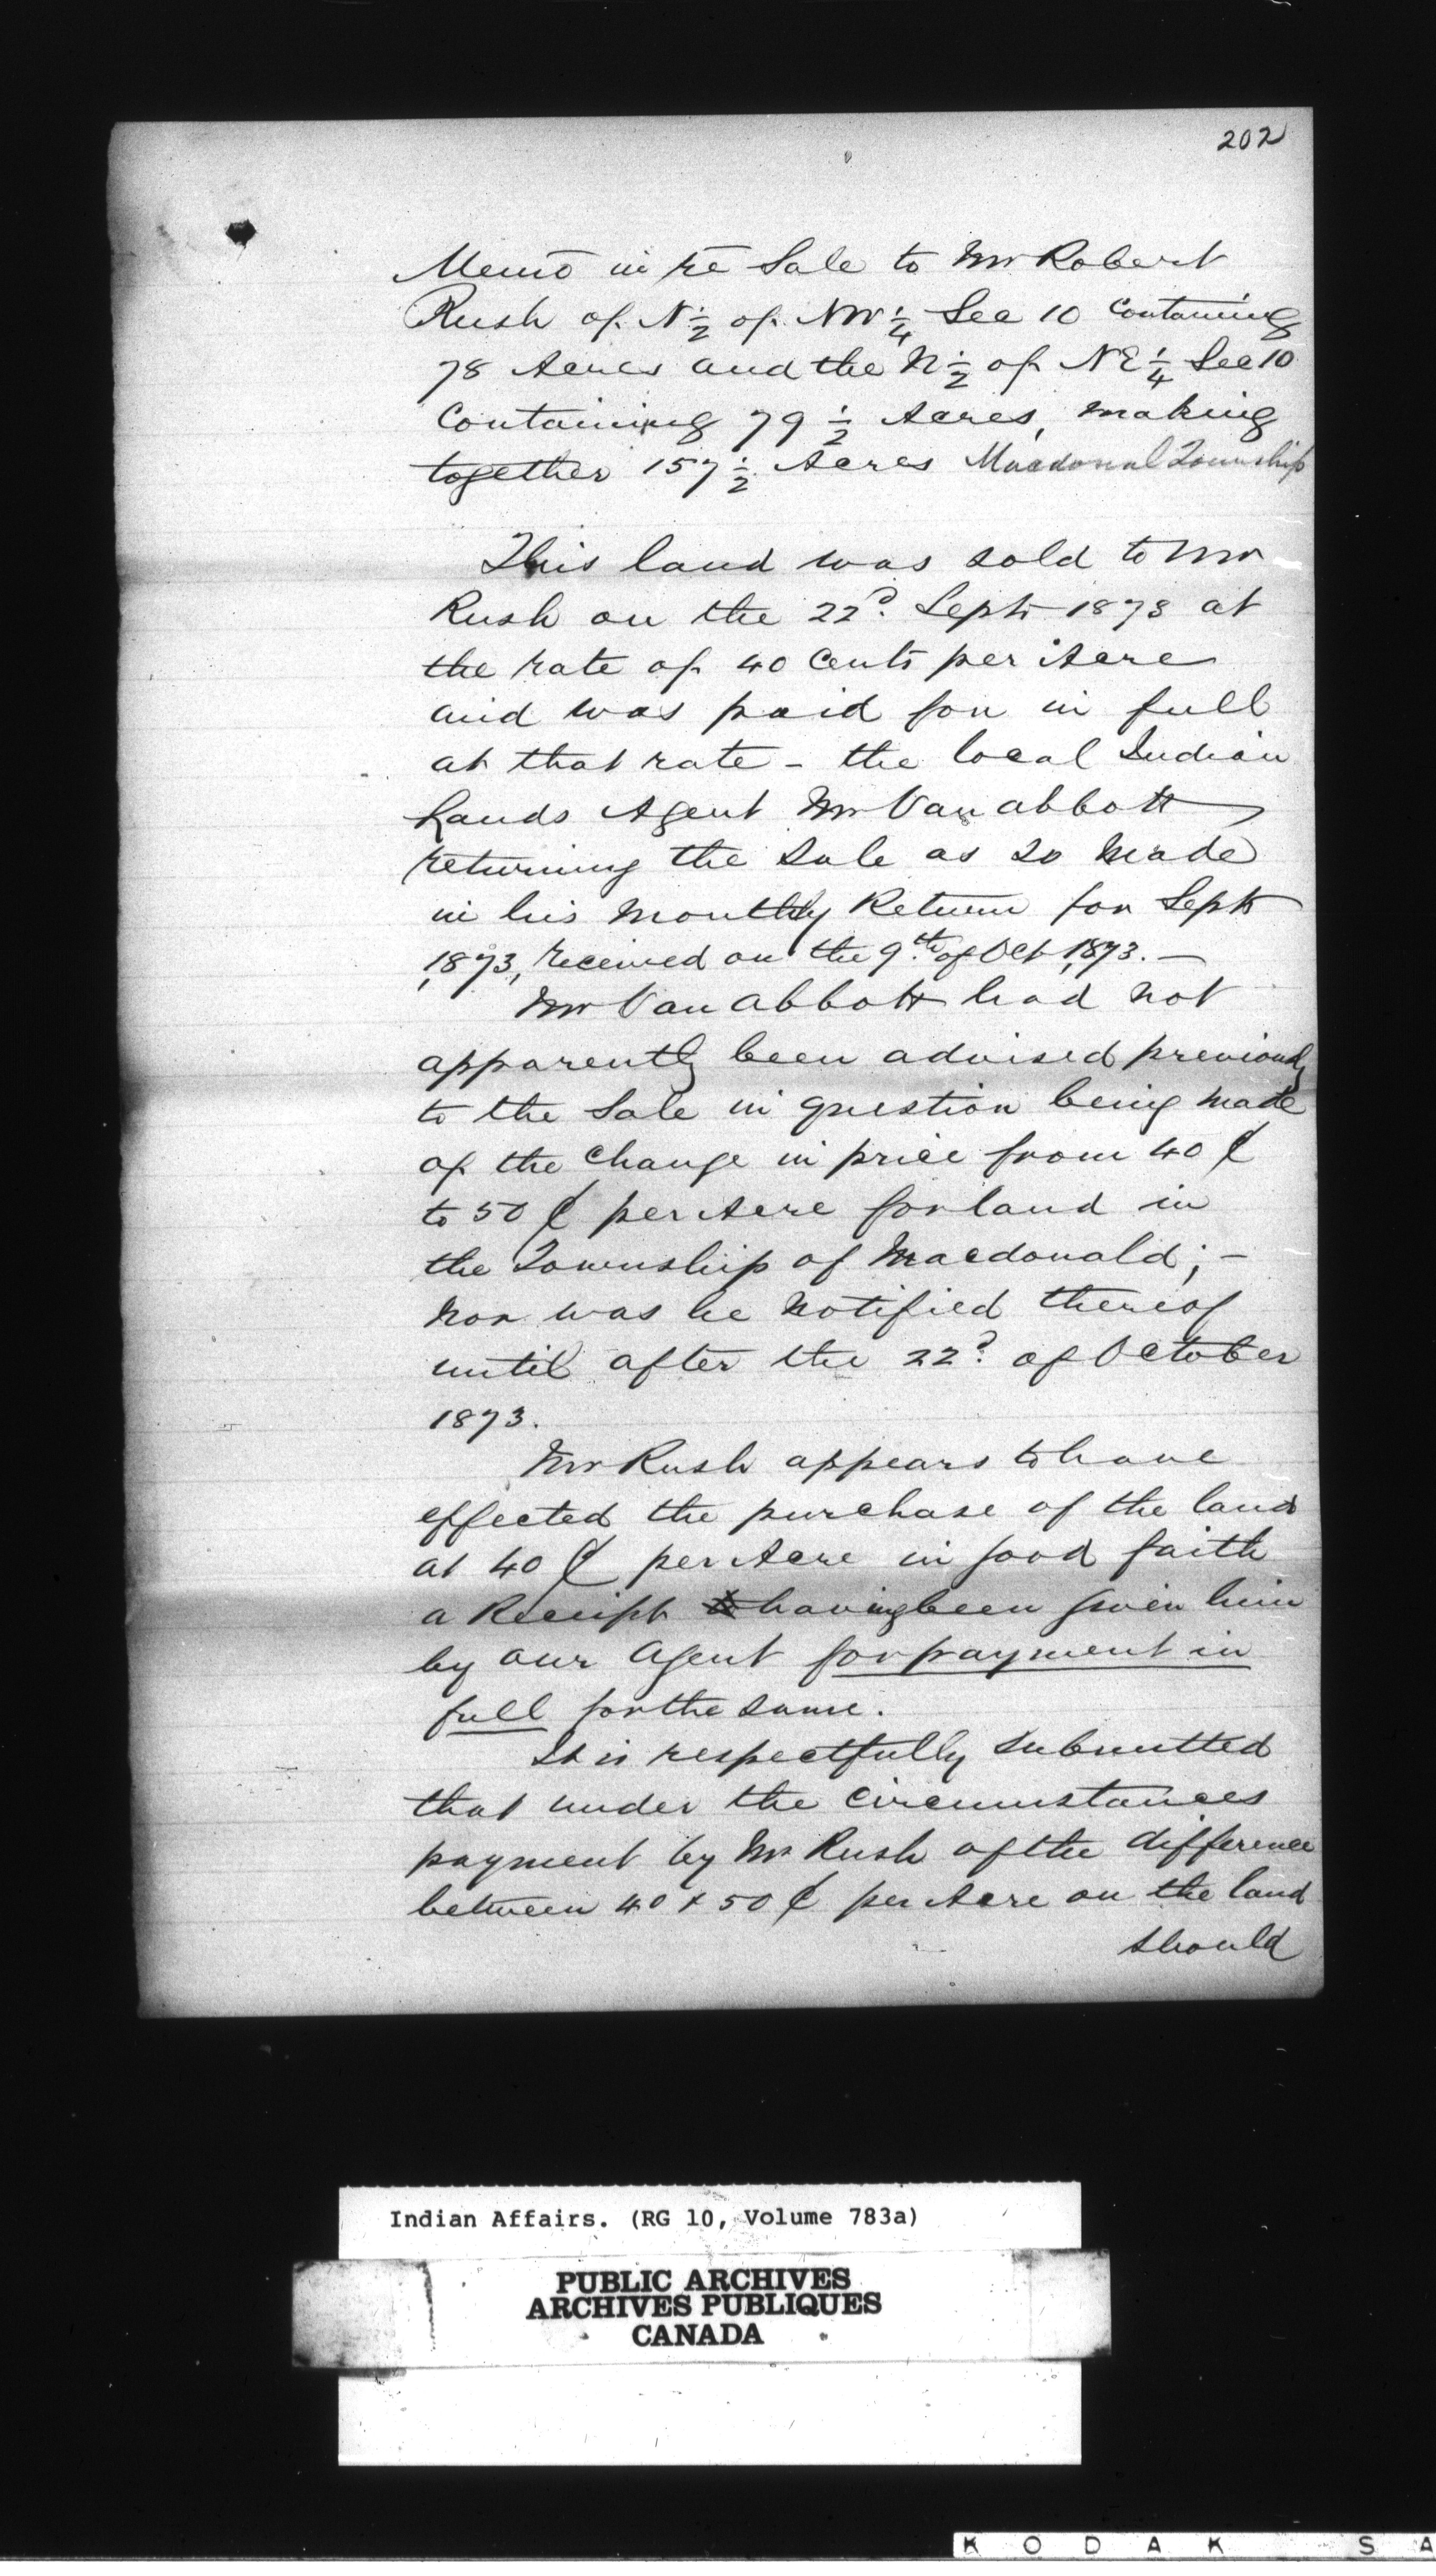 202
Memo in re Sale to Mr Robert
Rush of N ½ of NW ¼ Sec 10 Containing
78 Acres and the N ½ of NE ¼ Sec 10
Containing 79 ½ Acres, making
together 157 ½ Acres Macdonal Township
This land was sold to Mr
Rush on the 22d. Sept 1873 at
the rate of 40 Cents per Acre
and was paid for in full
at that rate - the local Indian
Lands Agent Mr Van abbott
returning the Sale as so made
in his Monthly Return for Sept
1873, received on the 9th. of Oct 1873. -
Mr Van abbott had not
apparently been advised previously
to the Sale in question being made
of the Change in price from 40 ¢
to 50 ¢ per Acre for land in
the Township of Macdonald; -
nor was he notified thereof
until after the 22d. of October
1873.
Mr Rush appears to have
effected the purchase of the land
at 40 ¢ per Acre in good faith
a Receipt having been given him
by our Agent for payment in
full for the same.
It is respectfully submitted
that under the Circumstances
payment by Mr Rush of the difference
between 40 & 50 ¢ per Acre on the land
should
Indian Affairs. (RG 10, Volume 783a)
PUBLIC ARCHIVES
ARCHIVES PUBLIQUES
CANADA
KODAK SA